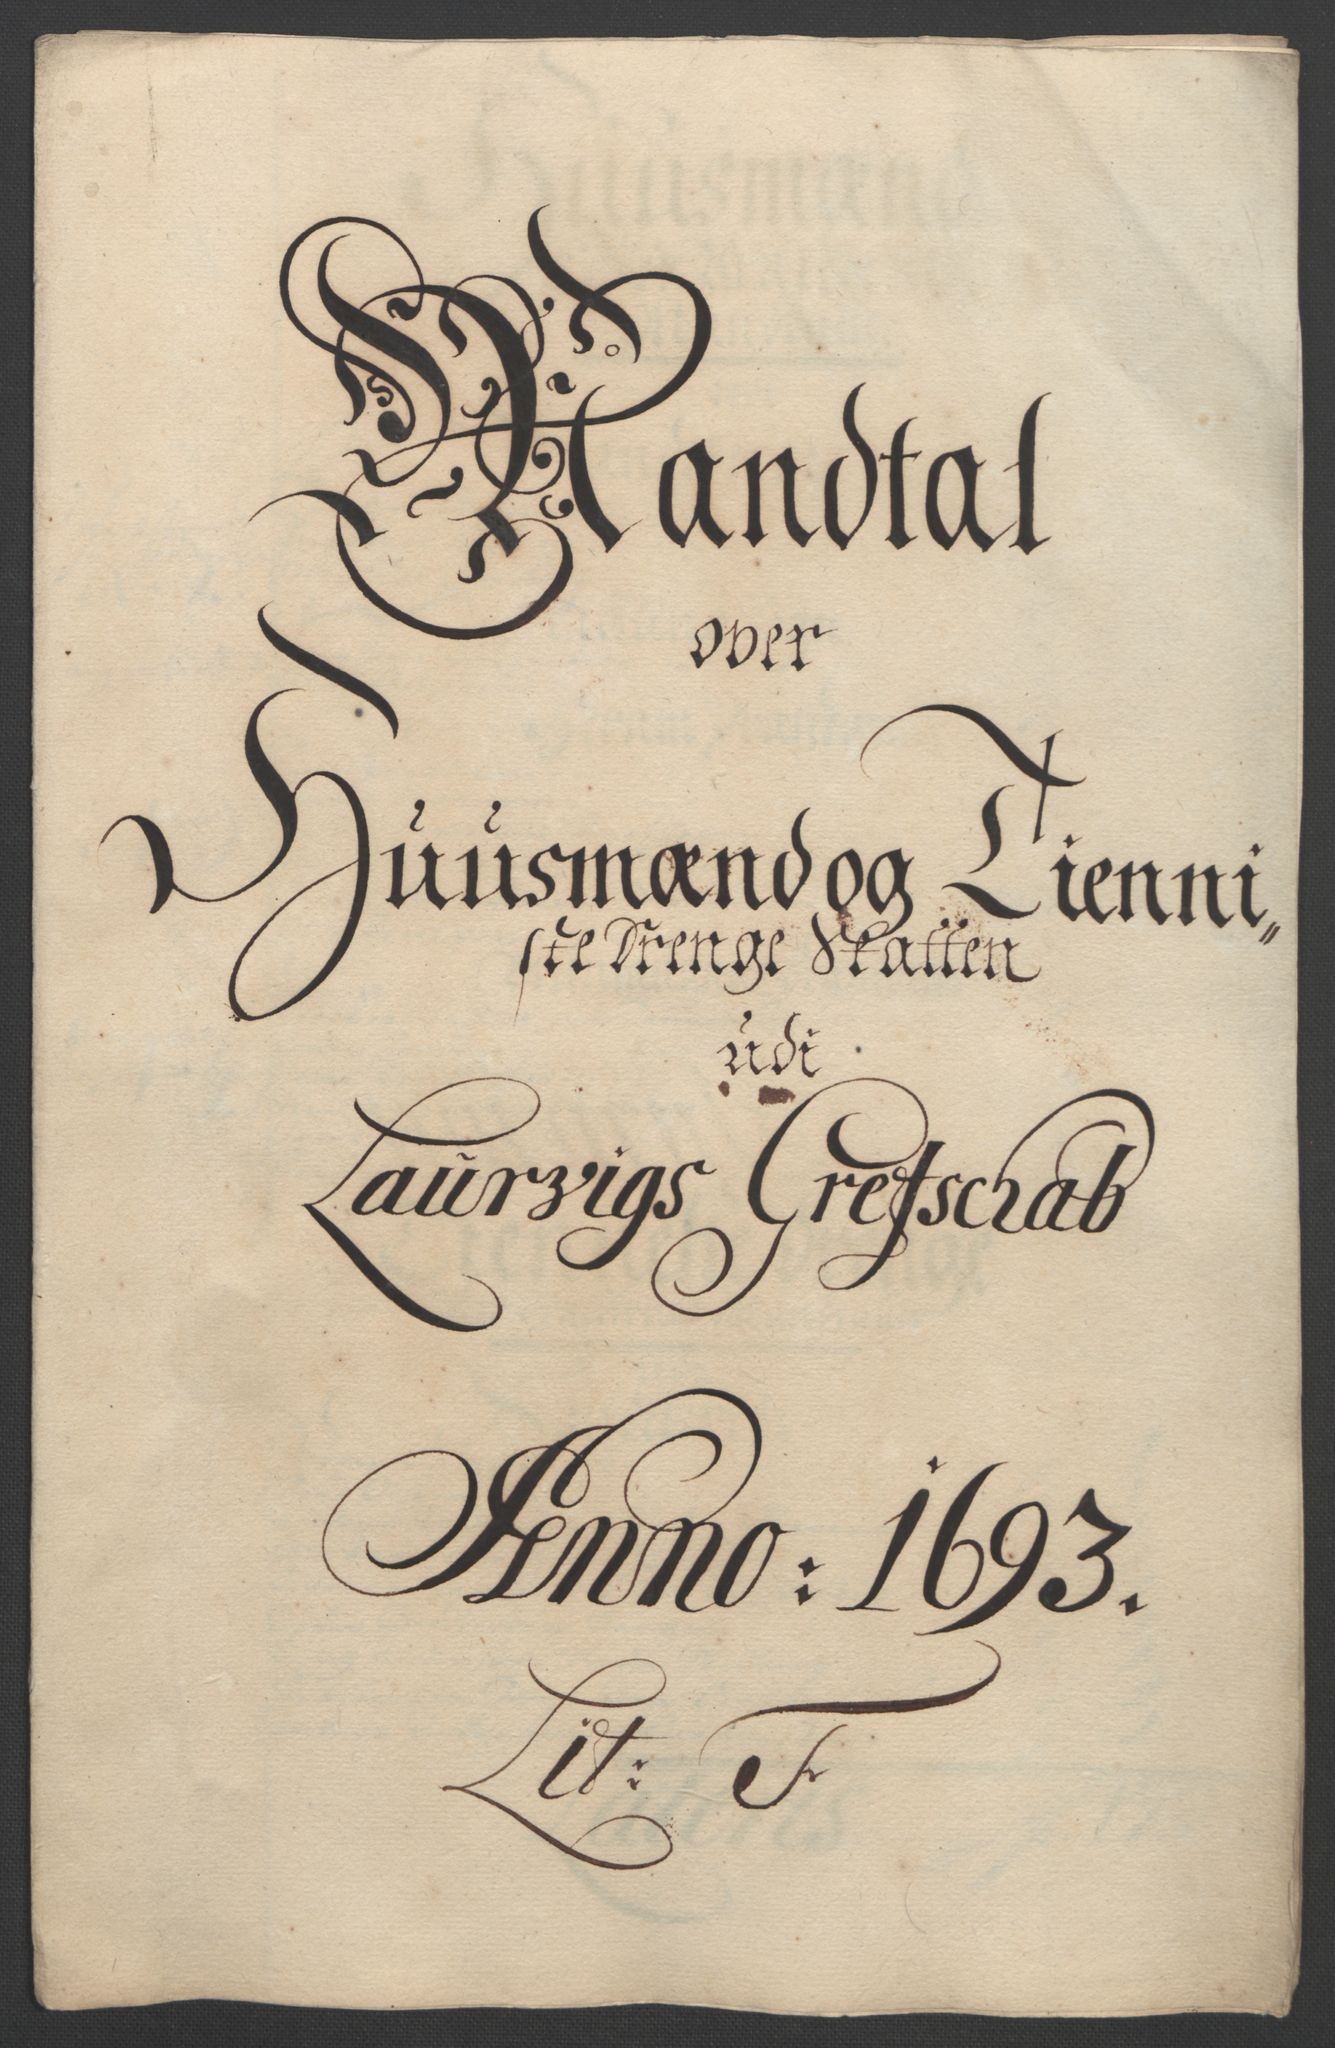 Mandtal
over
Huusmænd og Tienni„
ste Drenge Skatten
udi
Laurvigs Grefschab
Anno: 1693.
Lit: F